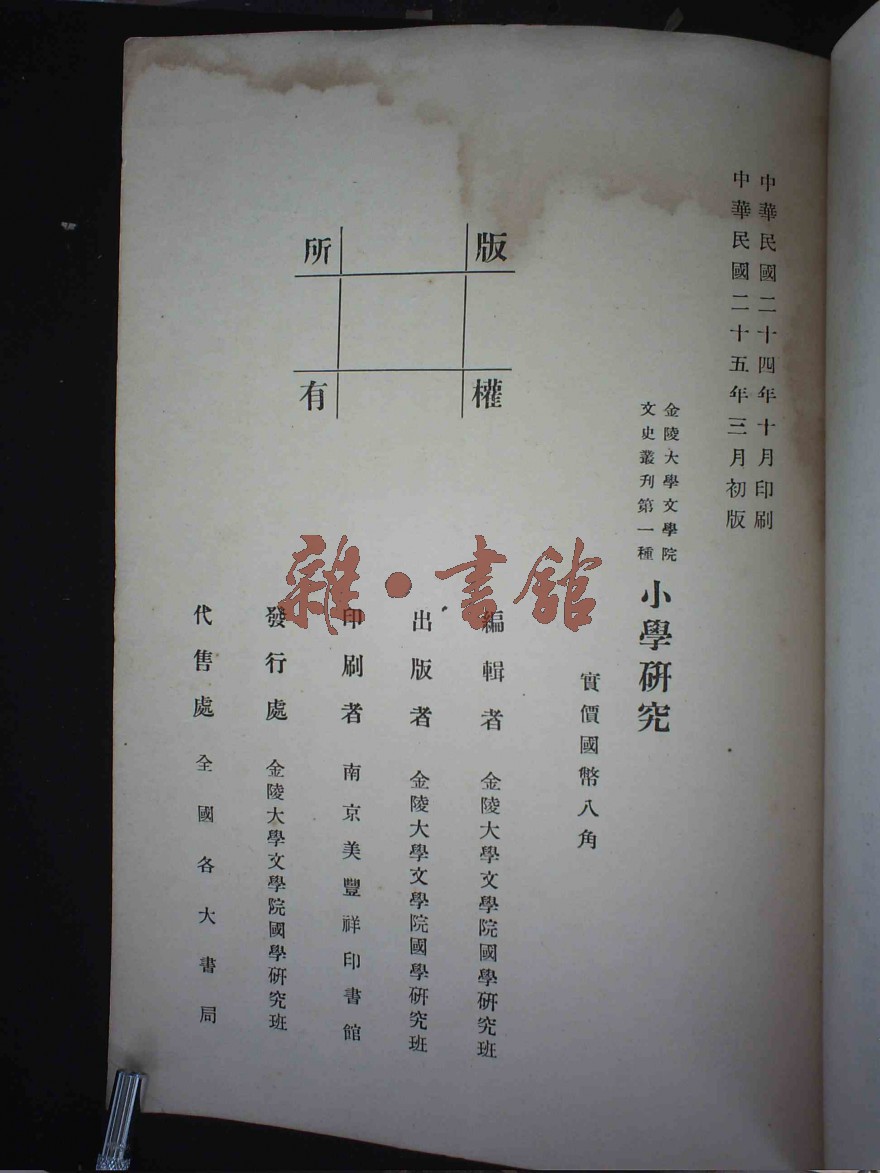 中華民國二十四年十月印刷
中華民國二十五年三月初版
金陵大學文學院
文史叢刊第一種
小學研究
實價國幣八角
編輯者 金陵大學文學院國學研究班
出版者 金陵大學文學院國學研究班
印刷者 南京美豐祥印書館
發行處 金陵大學文學院國學研究班
代售處 全國各大書局
版權
所有
雜·書館